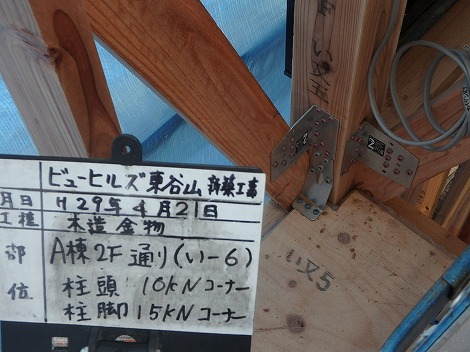 ビューヒルズ東谷山 新築工事
月日 H29年4月21日
工種 木造金物
部位 A棟2F通り(い-6)
柱頭 10kNコーナー
柱脚 15kNコーナー
い又5